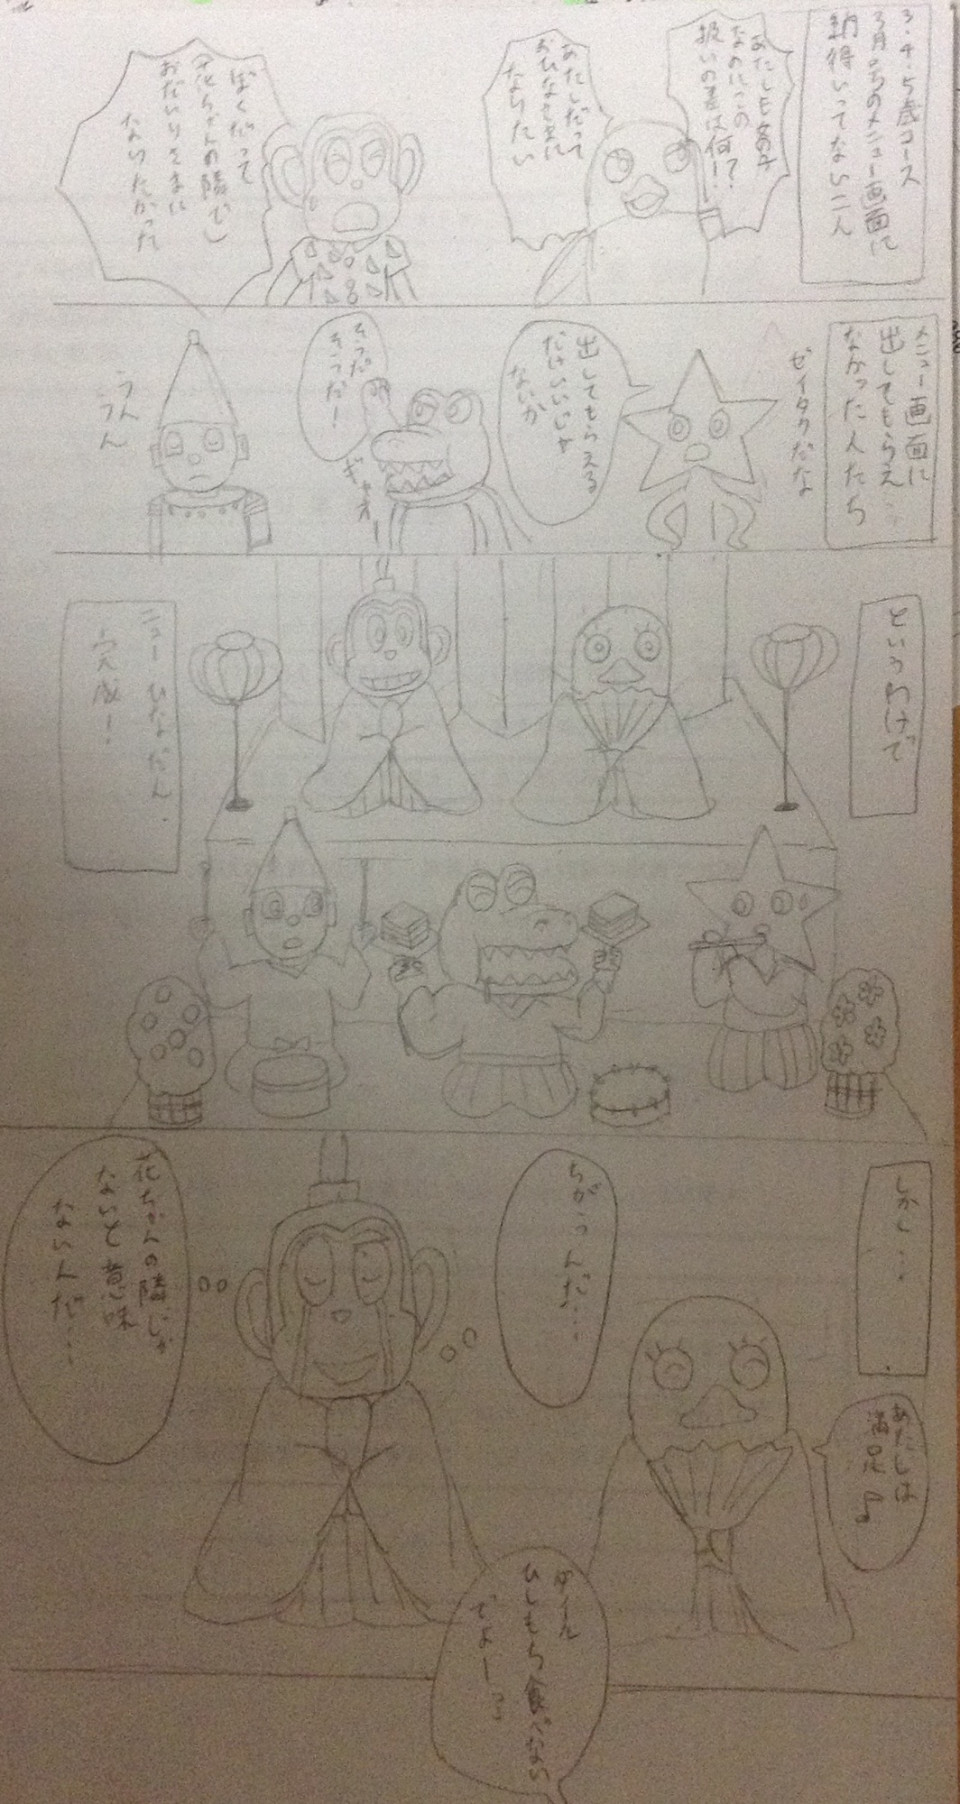 3・4・5歳コース
3月号のメニュー画面に
納得いってない二人
あたしも女の子
なのにこの
扱いの差は何！？
あたしだって
おひなさまに
なりたい
ぼくだって
花ちゃんの隣で
おだいりさまに
なりたかった
メニュー画面に
出してもらえ
なかった人たち
ゼイタクだな
出してもらえる
だけいいじゃ
ないか
そうだ
そうだ！
ギャオー
うんうん
というわけで
ニューひなだん
完成！
しかし…
あたしは
満足♪
ちがうんだ…
花ちゃんの隣じゃ
ないと意味
ないんだ…
ひしもち食べない
でよーっ